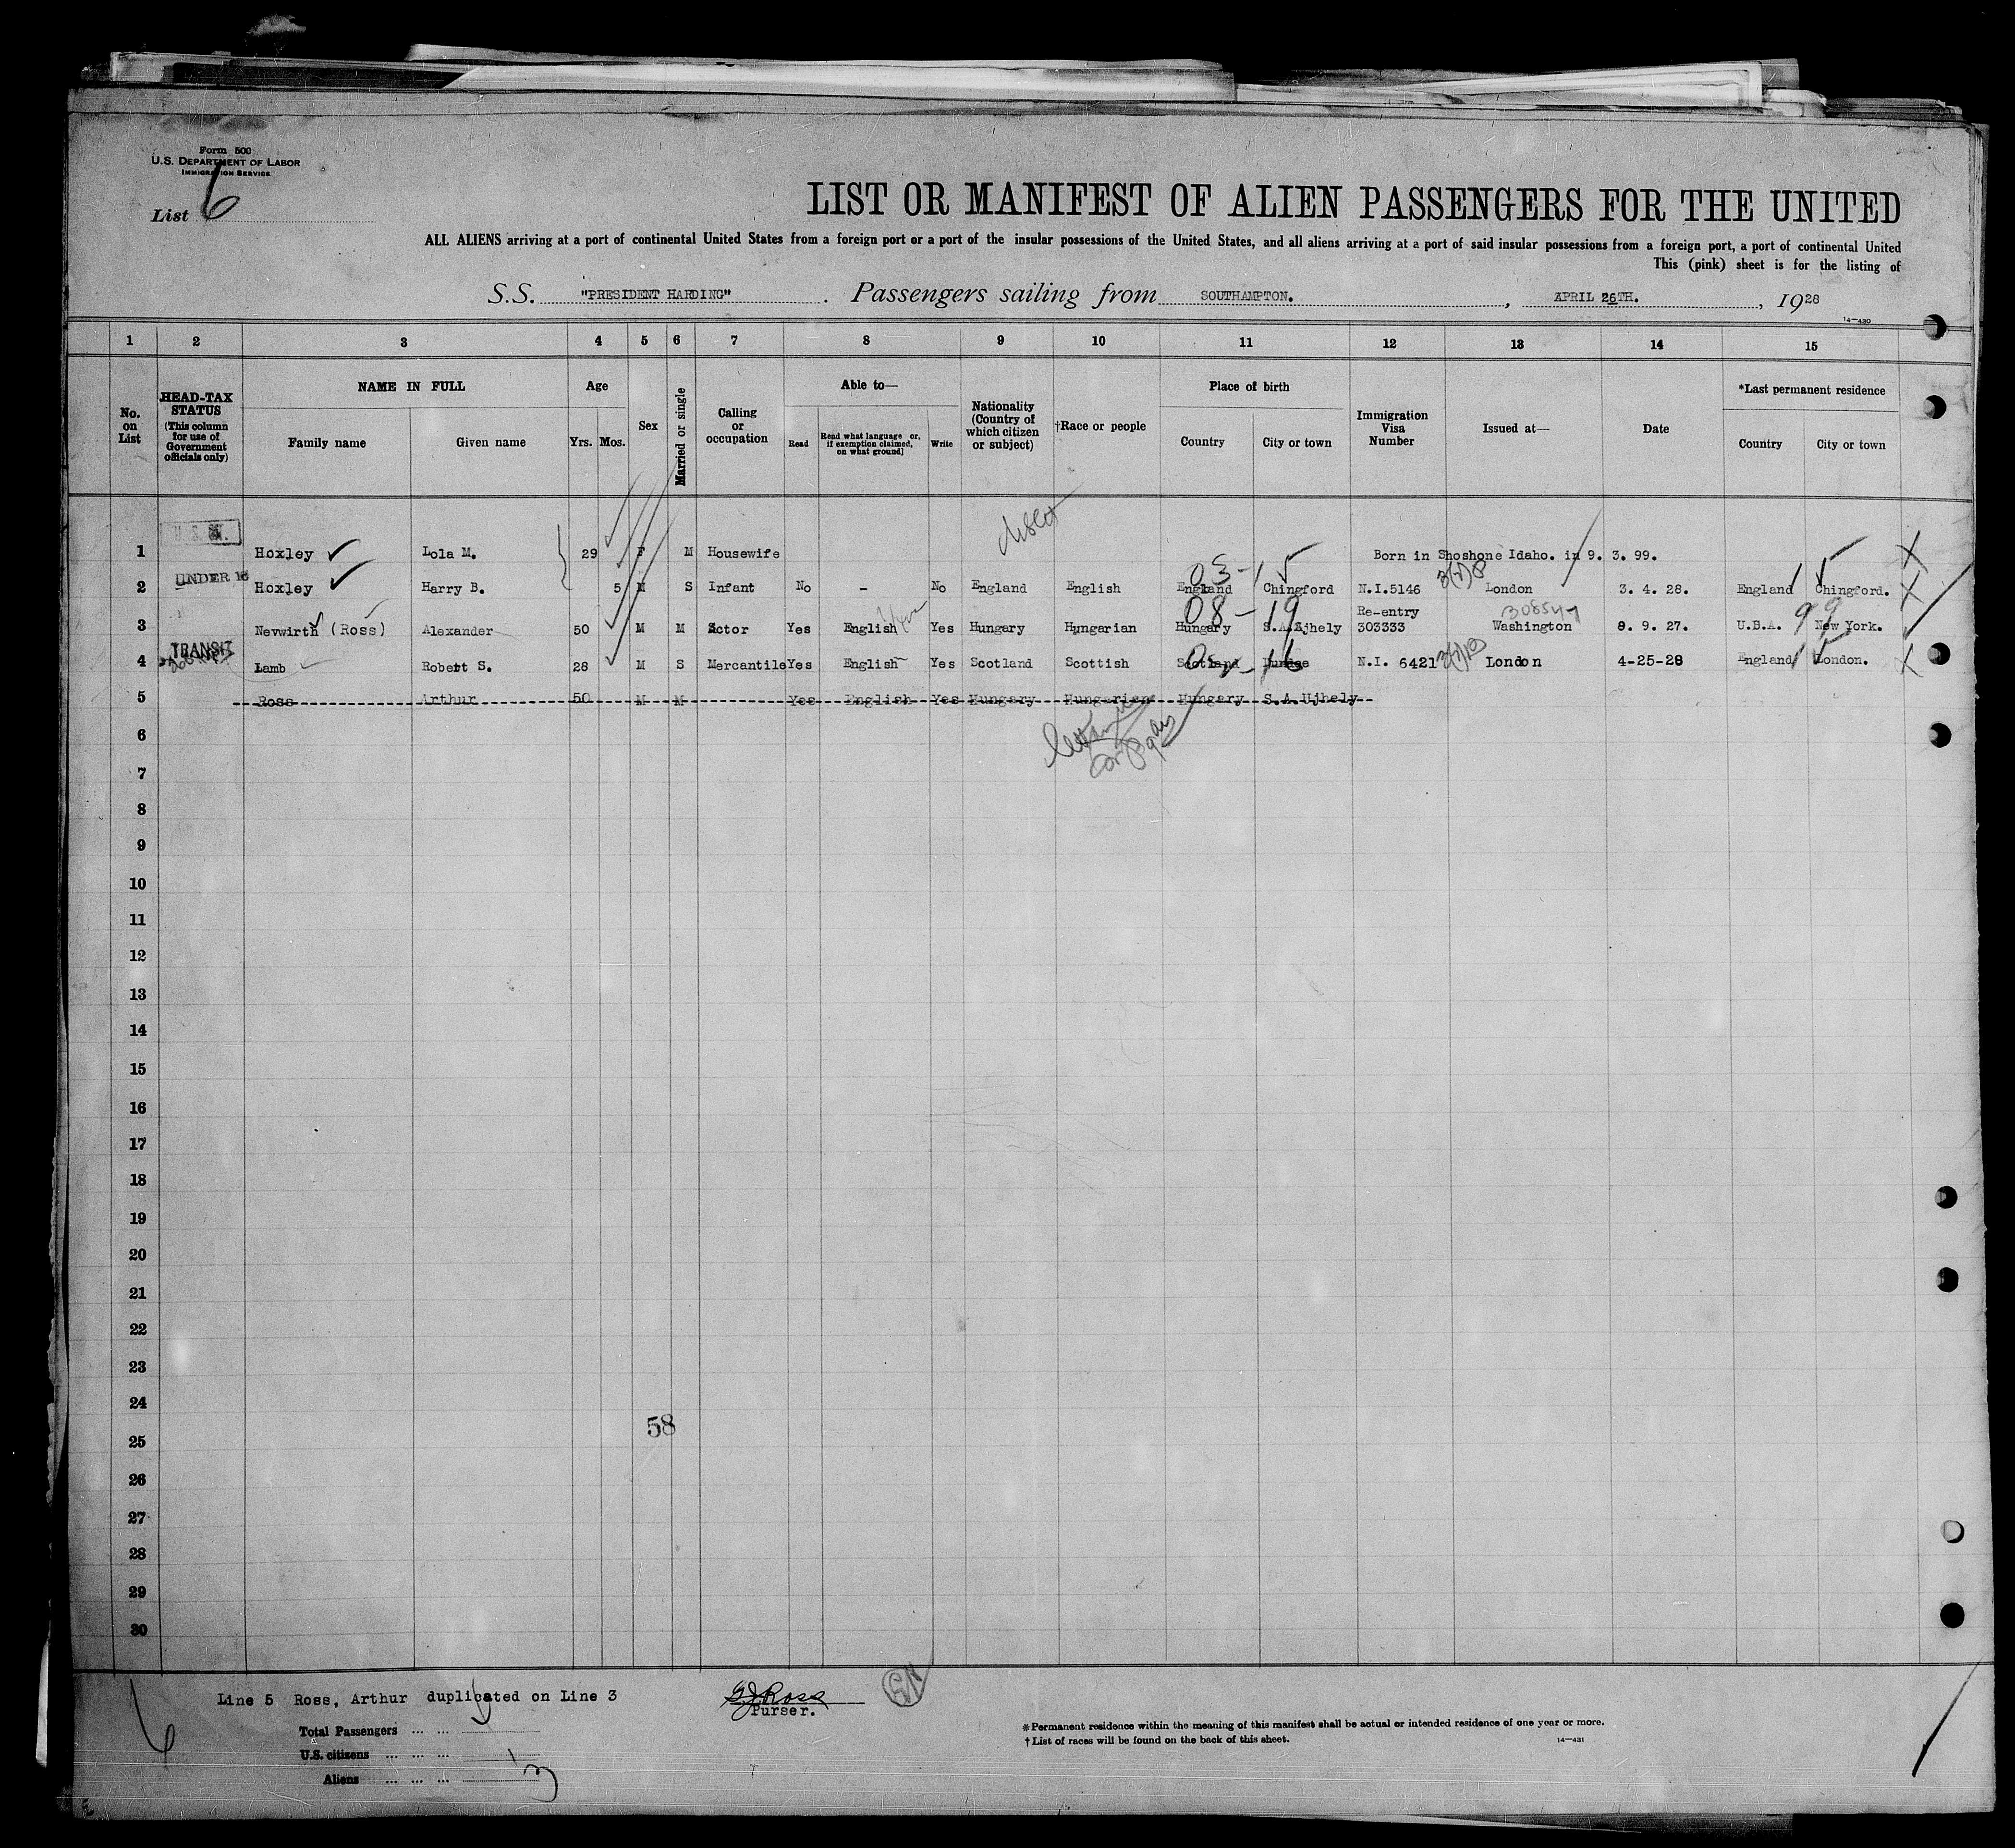 Form 500
U.S. DEPARTMENT OF LABOR
IMMIGRATION SERVICE
List 6
LIST OR MANIFEST OF ALIEN PASSENGERS FOR THE UNITED
ALL ALIENS arriving at a port of continental United States from a foreign port or a port of the insular possessions of the United States, and all aliens arriving at a port of said insular possessions from a foreign port, a port of continental United
This (pink) sheet is for the listing of
S.S. "PRESIDENT HARDING" . Passengers sailing from SOUTHAMPTON. , APRIL 26TH. , 1928
14—430
1 2 3 4 5 6 7 8 9 10 11 12 13 14 15
No. on List
HEAD-TAX STATUS (This column for use of Government officials only)
NAME IN FULL
Family name Given name
Age
Yrs. Mos.
Sex
Married or single
Calling or occupation
Able to—
Read Read what language or, if exemption claimed, on what ground] Write
Nationality (Country of which citizen or subject)
†Race or people
Place of birth
Country City or town
Immigration Visa Number
Issued at—
Date
*Last permanent residence
Country City or town
1 Hoxley Lola M. 29 F M Housewife Born in Shoshone Idaho. in 9. 3. 99.
03-1
2 UNDER 16 Hoxley Harry B. 5 M S Infant No - No England English England Chingford N.I.5146 London 3. 4. 28. England Chingford.
08-19 Re-entry 99
3 Nevwirth (Ross) Alexander 50 M M Actor Yes English Yes Hungary Hungarian Hungary S.A.Ujhely 303333 Washington 8. 9. 27. U.S.A. New York.
4 TRANSIT Lamb Robert S. 28 M S Mercantile Yes English Yes Scotland Scottish Scotland Dundee N.I. 6421 London 4-25-28 England London.
5 Ross Arthur 50 M M Yes English Yes Hungary Hungarian Hungary S.A.Ujhely
6
7
8
9
10
11
12
13
14
15
16
17
18
19
20
21
22
23
24
58
25
26
27
28
29
30
Line 5 Ross, Arthur duplicated on Line 3
Purser.
Total Passengers ... ...
U.S. citizens ... ... ... 1
Aliens ... ... ... 3
*Permanent residence within the meaning of this manifest shall be actual or intended residence of one year or more.
†List of races will be found on the back of this sheet.
14—431